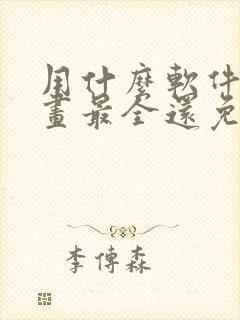 用什麼軟件
畫最全還免
李傳森